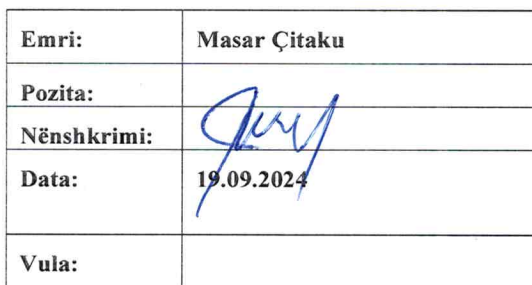 Emri: Masar Çitaku
Pozita:
Nënshkrimi:
Data: 19.09.2024
Vula: